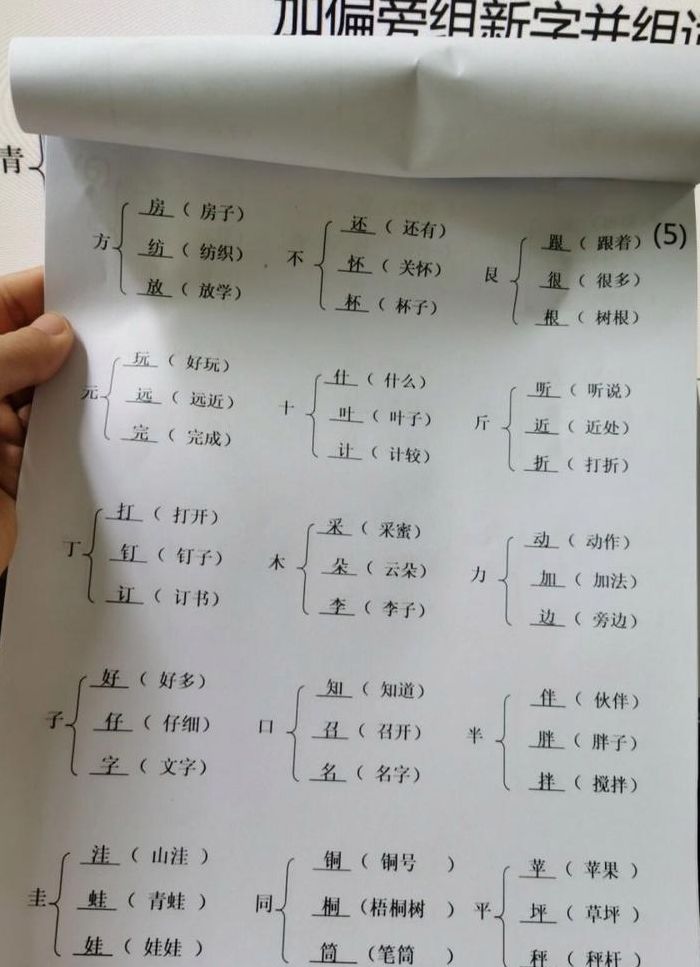 加偏旁组新字并组
青
(5)
方 房 ( 房子) 纺 ( 纺织) 放 ( 放学)
不 还 ( 还有) 怀 ( 关怀) 杯 ( 杯子)
艮 跟 ( 跟着) 很 ( 很多) 根 ( 树根)
元 玩 ( 好玩) 远 ( 远近) 完 ( 完成)
十 什 ( 什么) 叶 ( 叶子) 计 ( 计较)
斤 听 ( 听说) 近 ( 近处) 折 ( 打折)
丁 打 ( 打开) 钉 ( 钉子) 订 ( 订书)
木 采 ( 采蜜) 朵 ( 云朵) 李 ( 李子)
力 动 ( 动作) 加 ( 加法) 边 ( 旁边)
子 好 ( 好多) 仔 ( 仔细) 字 ( 文字)
口 知 ( 知道) 召 ( 召开) 名 ( 名字)
半 伴 ( 伙伴) 胖 ( 胖子) 拌 ( 搅拌)
圭 洼 ( 山洼 ) 蛙 ( 青蛙 ) 娃 ( 娃娃 )
同 铜 ( 铜号 ) 桐 (梧桐树 ) 筒 (笔筒 )
平 苹 ( 苹果 ) 坪 ( 草坪 ) 秤 ( 秤杆 )